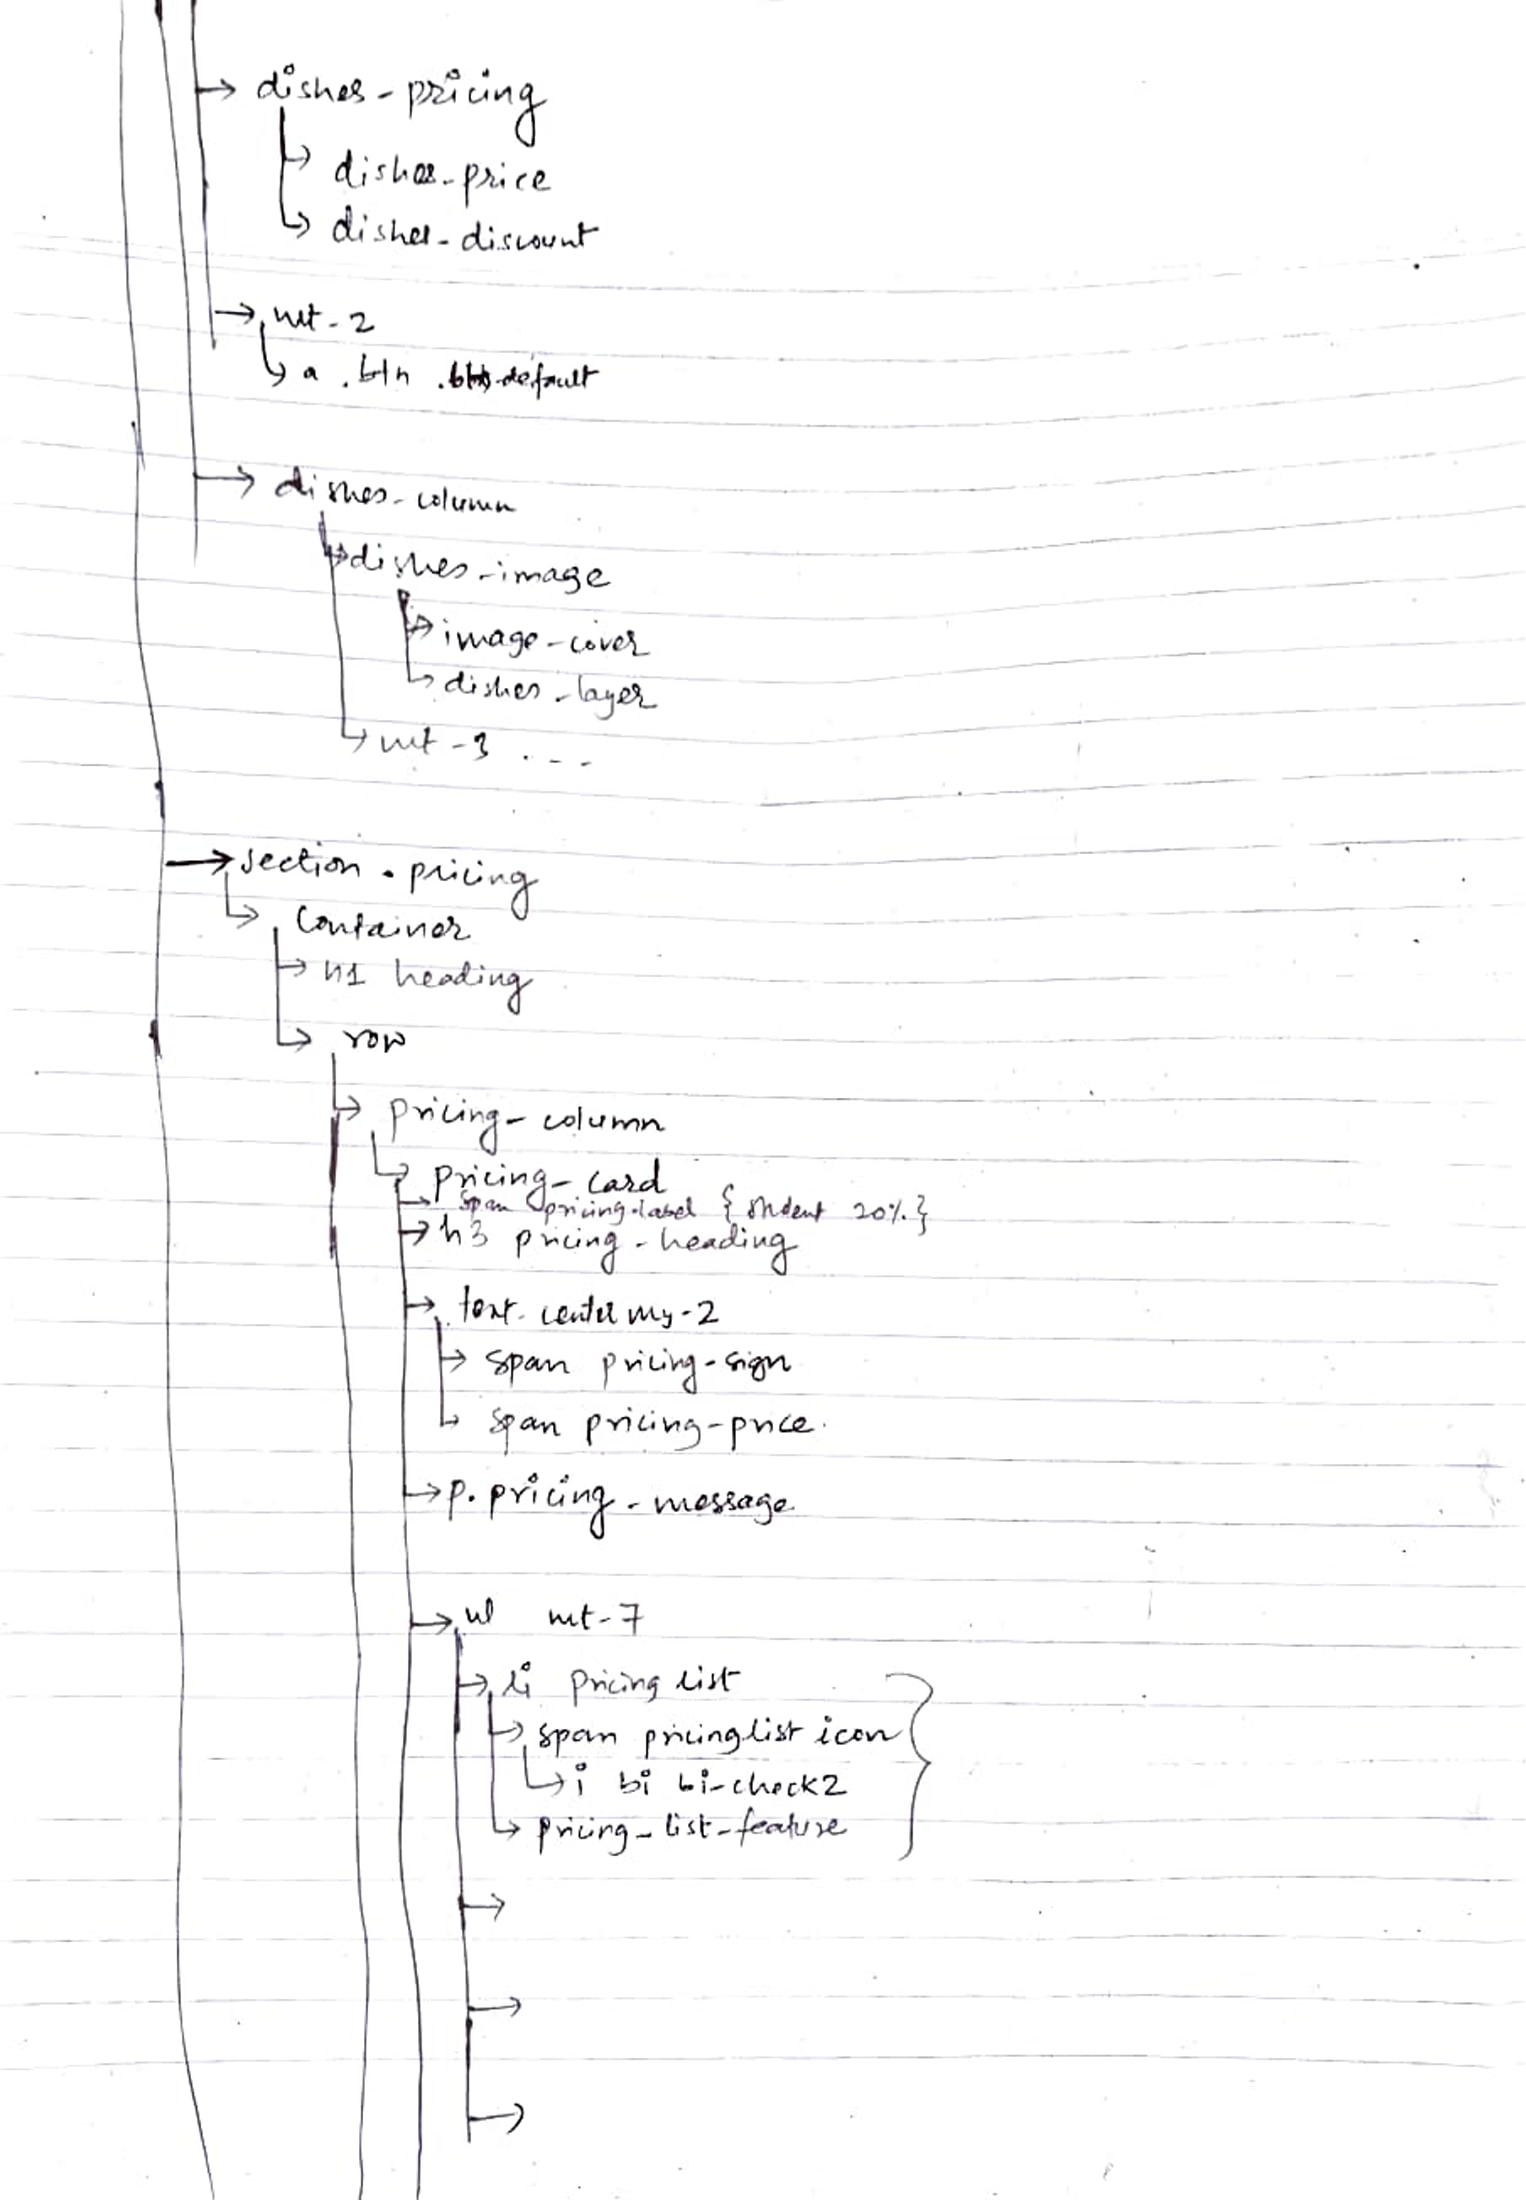 dishes-pricing
dishes-price
dishes-discount
mt-2
a .btn .btn-default
dishes-column
dishes-image
image-cover
dishes-layer
mt-3 ....
section.pricing
Container
h1 heading
row
pricing-column
pricing-card
span pricing-label { student 20% }
h3 pricing-heading
text-center my-2
span pricing-sign
span pricing-price.
p.pricing-message
ul mt-7
li pricing list
span pricinglist icon
i bi bi-check2
pricing-list-feature